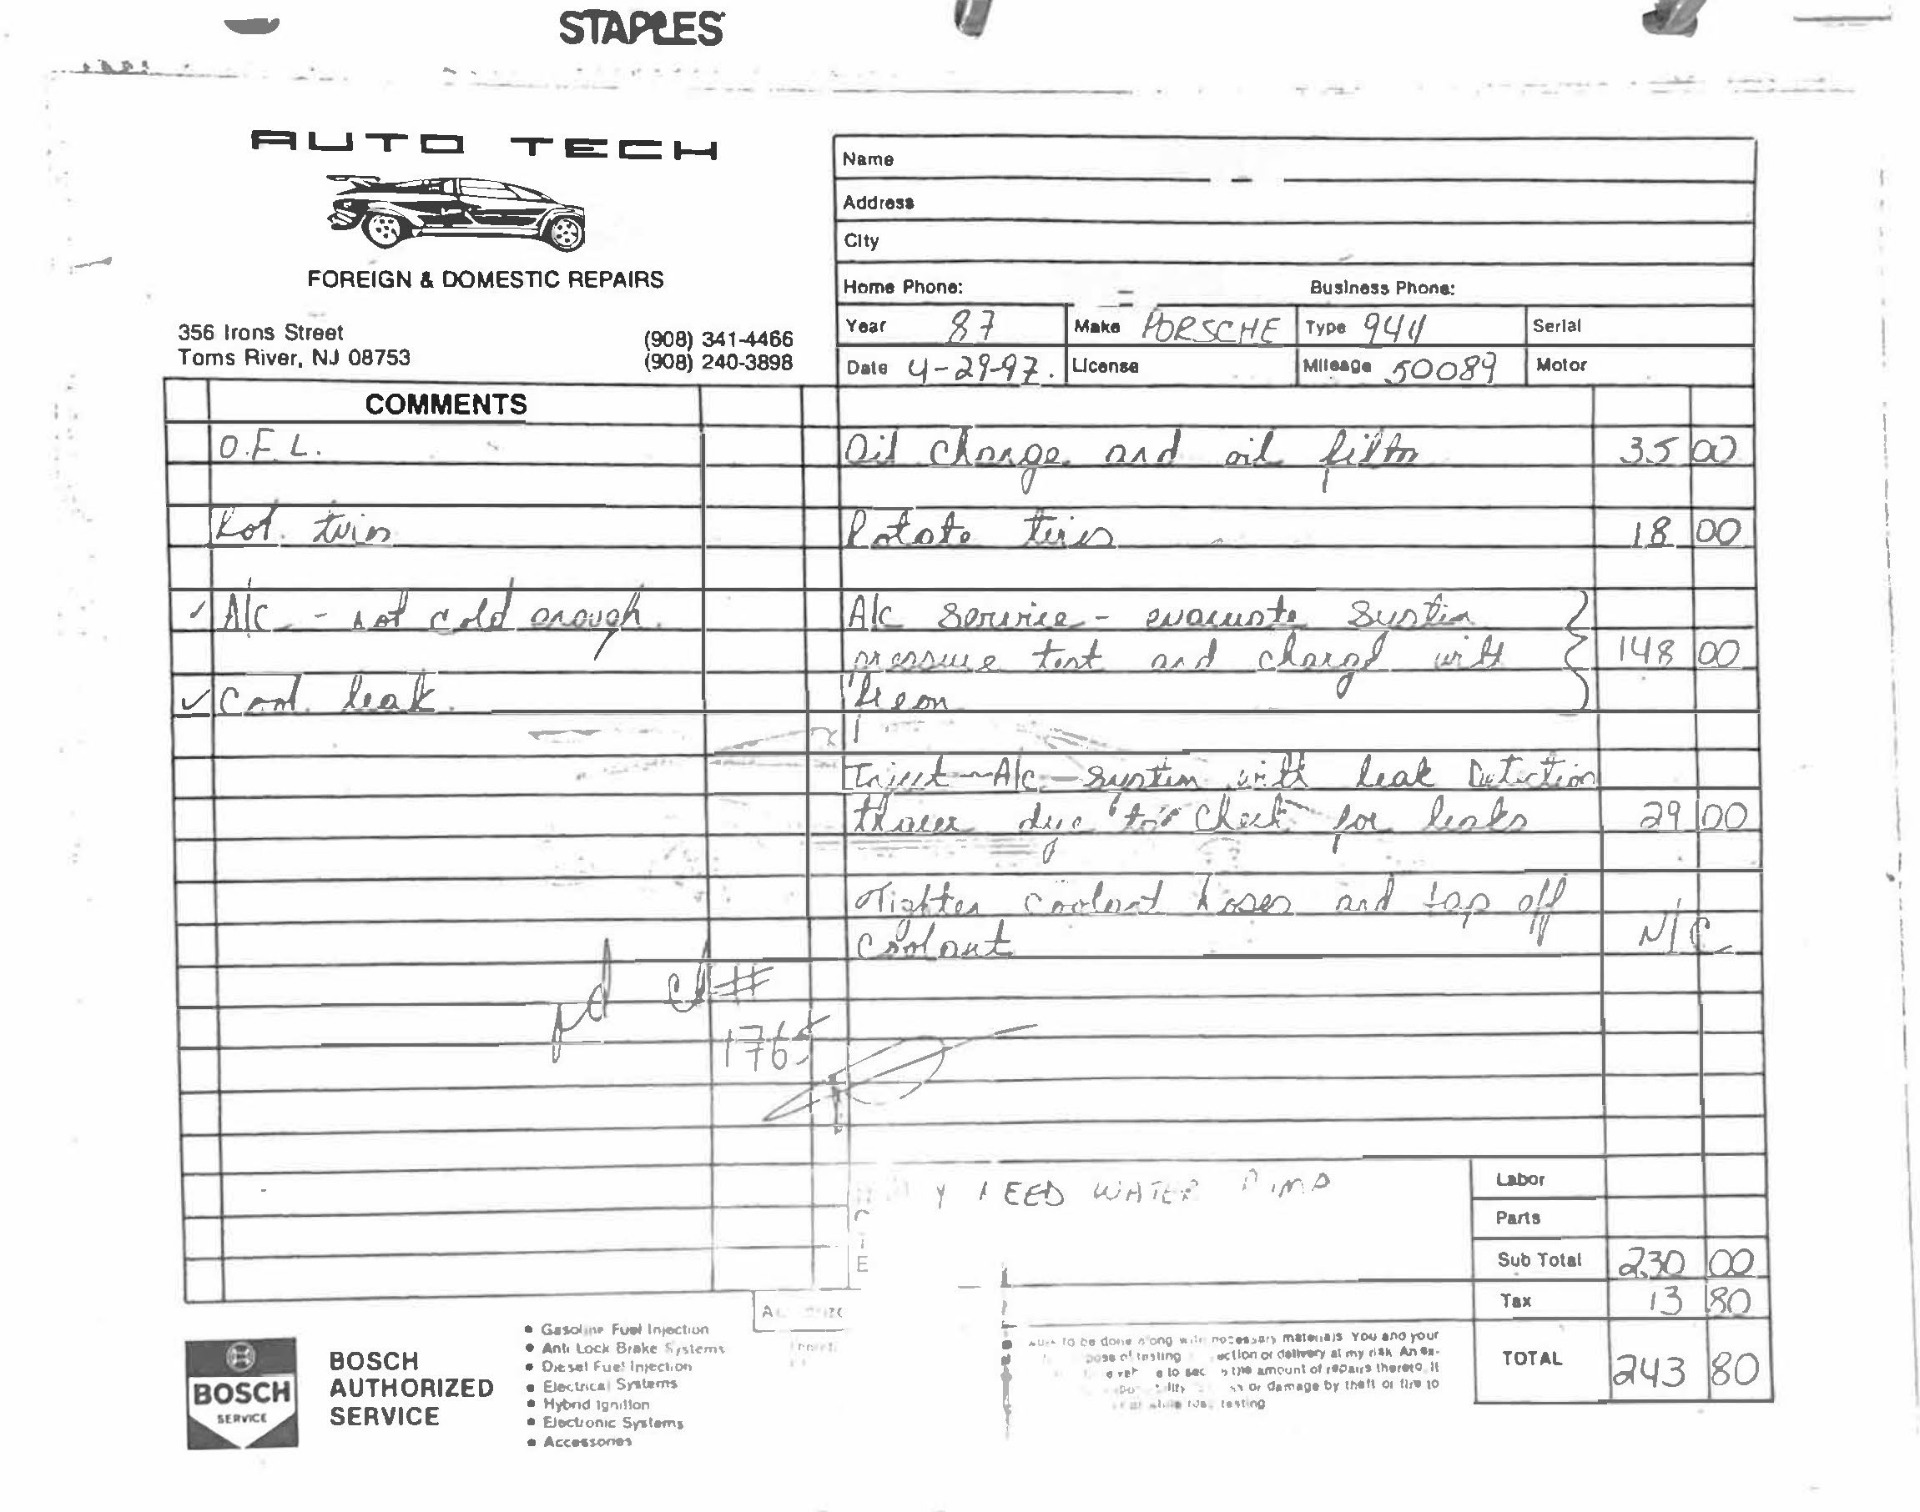 STAPLES
AUTO TECH
FOREIGN & DOMESTIC REPAIRS
356 Irons Street (908) 341-4466
Toms River, NJ 08753 (908) 240-3898
Name
Address
City
Home Phone: Business Phone:
Year 87 Make PORSCHE Type 944 Serial
Date 4-29-97. License Mileage 50089 Motor
COMMENTS
O.F.L. Oil change and oil filter 35 00
Rot. tires Rotate tires 18 00
✓ A/C - not cold enough. A/c service - evacuate system
pressure test and charge with 148 00
✓ Cool. leak. freon
Inject A/c system with leak Detection
dye to check for leaks 29 00
Tighten coolant hoses and top off
coolant N/C
pd ck#
1765
NEED WATER PUMP
Labor
Parts
Sub Total 230 00
Tax 13 80
TOTAL 243 80
BOSCH
SERVICE
BOSCH
AUTHORIZED
SERVICE
• Gasoline Fuel Injection
• Anti Lock Brake Systems
• Diesel Fuel Injection
• Electrical Systems
• Hybrid Ignition
• Electronic Systems
• Accessories
work to be done along with necessary materials You and your
testing ection or delivery at my risk An ex-
to sec the amount of repairs thereto. It
or damage by theft or fire to
testing